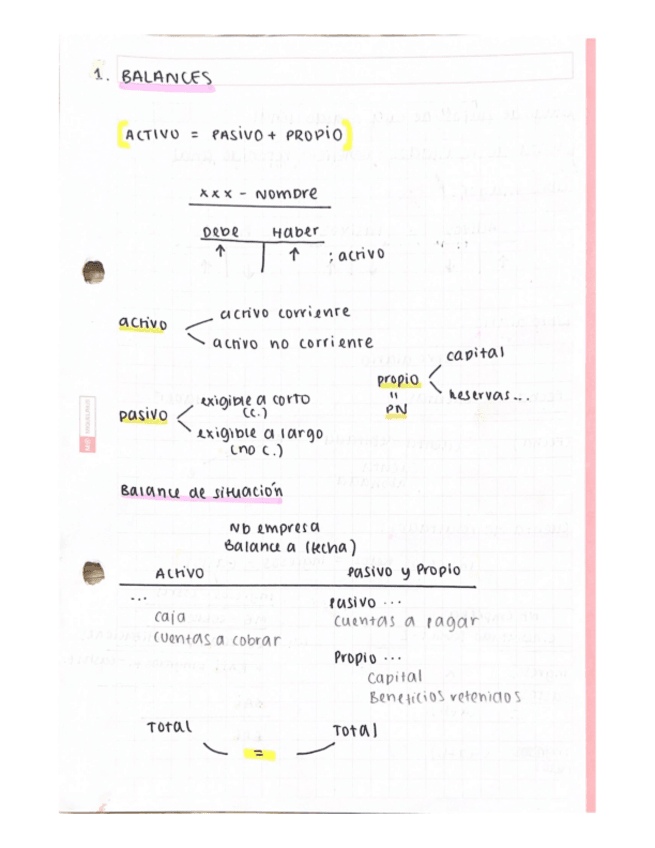 1. BALANCES
[ACTIVO = PASIVO + PROPIO]
xxx - Nombre
Debe Haber
↑ ↑ : activo
activo
activo corriente
activo no corriente
pasivo
exigible a corto
(c.)
exigible a largo
(no c.)
propio
"
PN
capital
Reservas...
Balance de situación
Nb empresa
Balance a (fecha)
Activo Pasivo y Propio
... Pasivo ...
caja Cuentas a pagar
Cuentas a cobrar
Propio ...
Capital
Beneficios retenidos
Total = Total